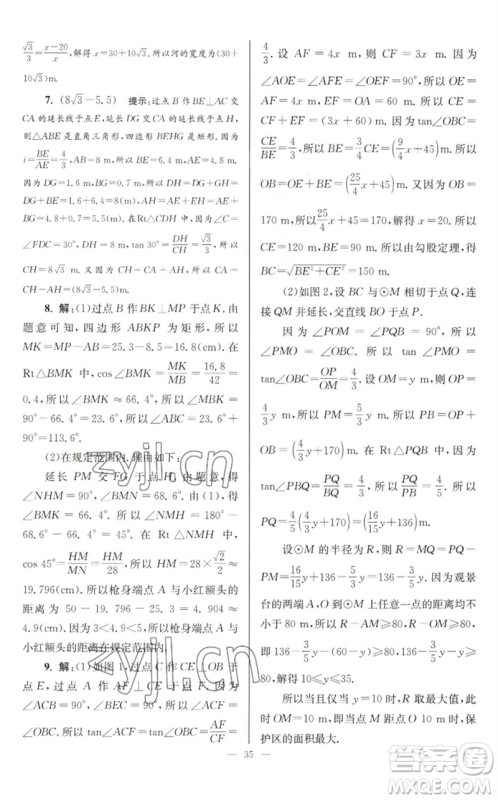 √3/3=(x-20)/x,解得 x=30+10√3,所以河的宽度为(30+
10√3)m.
7. (8√3-5.5) 提示:过点 B 作 BE⊥AC 交
CA 的延长线于点 E,延长 DG 交 CA 延长线于点 H,
则△ABE 是直角三角形,四边形 BEHG 是矩形. 因为
i=BE/AE=4/3,AB=8 m,所以 BE=6.4 m,AE=4.8 m.
因为 DG=1.6 m,BG=0.7 m,所以 DH=DG+GH=
1.6+6.4=8(m),AH=AE+EH=AE+BG=
4.8+0.7=5.5(m). 在 Rt△CDH 中,因为∠C=
∠FDC=30°,DH=8 m,tan 30°=DH/CH=√3/3,所以
CH=8√3 m. 因为 CH=CA+AH,所以 CA=
(8√3-5.5)m.
8. 解:(1)过点 B 作 BK⊥MP 于点 K,由
题意可知,四边形 ABKP 为矩形,所以
MK=MP-AB=25.3-8.5=16.8(cm). 在
Rt△BMK 中,cos∠BMK=MK/MB=16.8/42=
0.4,所以∠BMK≈66.4°,所以∠MBK=
90°-66.4°=23.6°,所以∠ABC=23.6°+
90°=113.6°.
(2)在规定范围内. 理由如下:
延长 PM 交 FG 于点 H,由题意,得
∠NHM=90°,∠BMN=68.6°,∠BMK=
66.4°,所以∠NMH=180°-
68.6°-66.4°=45°. 在 Rt△MNH 中,
cos 45°=HM/MN=HM/28,所以 HM=28×√2/2≈
19.796(cm),所以枪身端点 A 与小红额头的
距离为 50-19.796-25.3=4.904≈
4.9(cm). 因为 3<4.9<5,所以枪身端点 A 与
小红额头的距离在规定范围内.
9. 解:(1)如图 1,过点 C 作 CE⊥OB 于
点 E,过点 A 作 AF⊥CE 于点 F,则
∠AFC=90°,所以 tan∠OCB=tan∠ACF=AF/CF=
4/3. 设 AF=4x m,则 CF=3x m. 因为
∠AOE=∠AFE=∠FEO=90°,所以四边形
AOEF 为矩形,所以 OE=AF=4x m,
EF=AO=45 m,所以 CE=
CF+EF=(3x+45) m. 因为 tan∠OBC=
CE/BE=4/3,所以 BE=3/4CE=(9/4x+45)m,所以
OB=OE+BE=(25/4x+45)m. 又因为 OB=
170 m,所以 25/4x+45=170,解得 x=20,所以
CE=120 m,BE=90 m,由勾股定理,得
BC=√(BE²+CE²)=150 m.
(2)如图 2,设 BC 与⊙M 相切于点 Q,连
接 QM 并延长,交直线 BO 于点 P.
因为∠POM=∠PQB=90°,所以
∠PMO=∠OBC. 因为 tan∠OBC=OP/OM=4/3,设
OM=y m,则 OP=4/3y m,所以 PB=OP+
OB=(4/3y+170)m. 在 Rt△PQB 中,因为
tan∠PBQ=PQ/BQ=4/3,所以 PQ/PB=4/5,所以
PQ=4/5(4/3y+170)=(16/15y+136)m.
设⊙M 的半径为 R m,则 R=MQ=PQ-
PM=16/15y+136-5/3y=(136-3/5y)m. 因为观景
台的两端 A,O 到⊙M 上任意一点的距离均不
小于 80,所以
80,解得 10≤y≤35.
所以当且仅当 y=10 时,R 取最大值,此
时 OM=10 m,即当点 O,M 的距离为 10 m,
保护区的面积最大.
35
zyjl.cn
zyjl.cn
答案圈
MXQE.COM